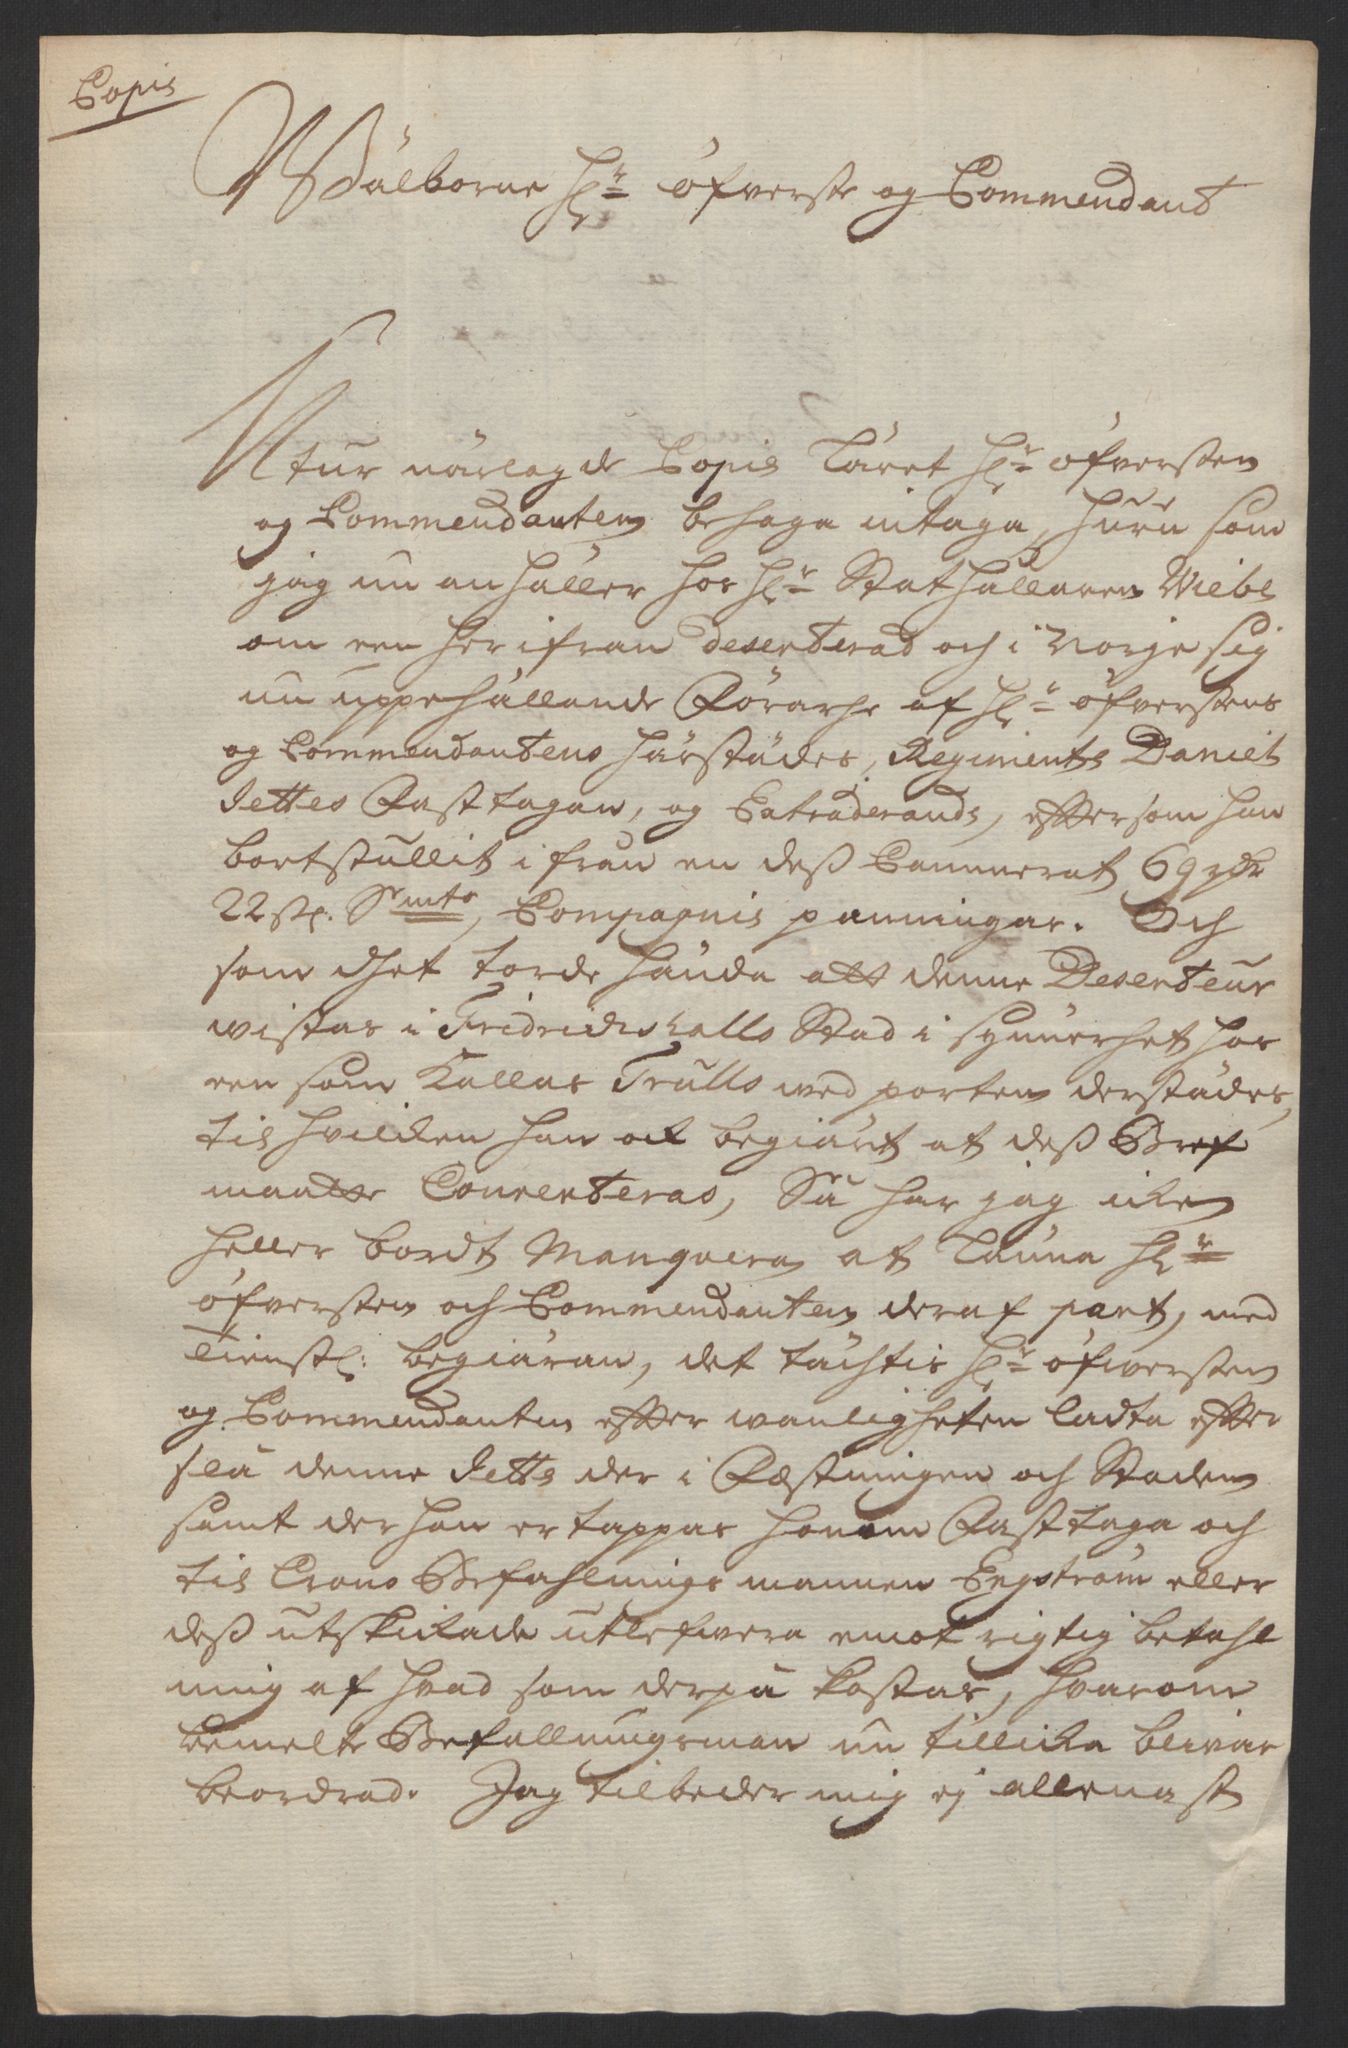 Copie
Wälborne Hr öfverste og Commendant
Utur närlagde Copie lärer Hr öfversten
og Commendanten behaga intaga, huru som
jag nu anhåller hos Hr Stathållaren Wiebe
om een herifrån deserterad och i Norje sig
nu uppehållande Förarhe af Hr öfverstens
og Commendantens härstädes, Regimente Daniel
Jettes Fasttagan, og Extraderande, eftersom han
bortstullit ifrån en dess Cammerat 69
22 st. Smt, Compagnie penningar. Och
som dhet torde hända att denne Deserteur
wistas i Fridrichshalls Stad i synnerhet hos
een som kallas Trulls wed porten derstädes,
til hvilken han ok begiärt at dess Bref
maatte Couverteras, Så har jag iken
heller bordt Manqvera at lämna Hr
öfversten och Commendanten deraf part, med
tienstl: begiäran, det tächtes Hr öfwersten
og Commendanten efter wanligheten ladta efter
slå denne Jette der i Fæstningen och Staden
samt der han ertappas honom Fasttaga och
til Crono Befahlnings mannen Engström eller
dess utskikade utlefwera emot rigtig betahl
ning af hvad som derpå kostas, hvarom
bemelte Befallningsman nu tillika blivar
beordrad. Jag tilbeder mig ej allenast